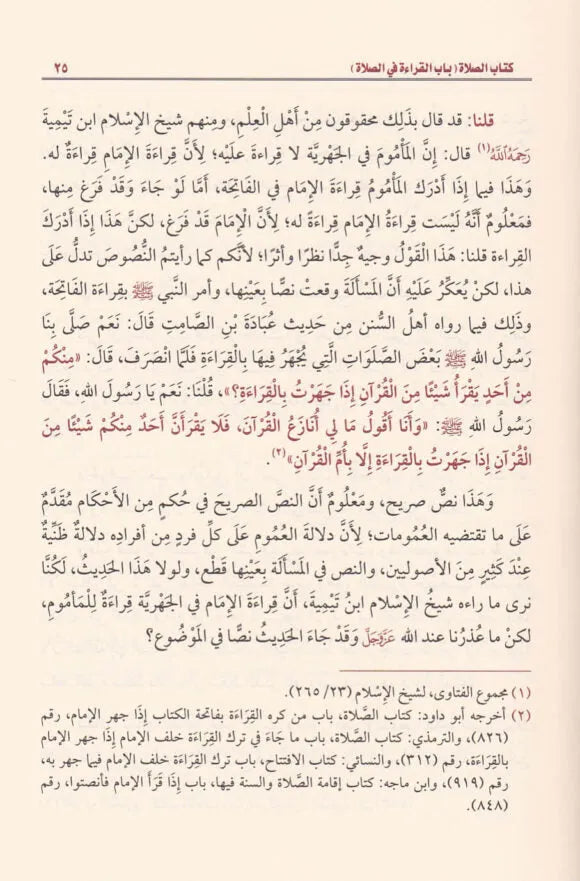 كتاب الصلاة (باب القراءة في الصلاة) ٢٥
قلنا: قد قال بذَلِك محقوقون مِنْ أَهْلِ الْعِلْمِ، ومنهم شيخ الإِسْلَام ابن تَيْمِيةَ
رَحِمَهُ اللَّهُ(١) قال: إِنَّ المَأْمُومَ فِي الجَهْرِيَّة لا قِراءةَ عَلَيْه؛ لِأَنَّ قِراءَةَ الإِمَامِ قِراءَةٌ له.
وَهَذَا فيما إِذَا أَدْرَك المَأْمُومُ قِراءَةَ الإِمَام في الفَاتِحَة، أَمَّا لَوْ جَاءَ وَقَدْ فَرَغَ منها،
فمَعْلُومٌ أَنَّهُ لَيْسَت قِراءَةُ الإِمَام قِراءَةً له؛ لِأَنَّ الإِمَامَ قَدْ فَرغَ، لكنَّ هَذَا إِذَا أَدْرَكَ
القِراءة قلنا: هَذَا القَوْلُ وجيهٌ جِدًّا نظرًا وأثرًا؛ لأنَّكم كما رأيتمُ النُّصُوصَ تدلُّ عَلَى
هذا، لكنْ يُعَكِّرُ عَلَيْهِ أَنَّ المَسْأَلَةَ وقعتْ نصًّا بِعَيْنِها، وأمر النَّبي ﷺ بِقِراءَةِ الفَاتِحَة،
وَذَلِك فيما رواه أهلُ السُّنن مِن حَدِيث عُبَادَةَ بْنِ الصَّامِتِ قَالَ: نَعَمْ صَلَّى بِنَا
رَسُولُ اللهِ ﷺ بَعْضَ الصَّلَوَاتِ الَّتِي يُجْهَرُ فِيهَا بِالْقِرَاءَةِ فَلَمَّا انْصَرَفَ، قَالَ: «مِنْكُمْ
مِنْ أَحَدٍ يَقْرَأُ شَيْئًا مِنَ الْقُرْآنِ إِذَا جَهَرْتُ بِالْقِرَاءَةِ؟»، قُلْنَا: نَعَمْ يَا رَسُولَ اللهِ، فَقَالَ
رَسُولُ اللهِ ﷺ: «وَأَنَا أَقُولُ مَا لِي أُنَازَعُ الْقُرْآنَ، فَلَا يَقْرَأَنَّ أَحَدٌ مِنْكُمْ شَيْئًا مِنَ
الْقُرْآنِ إِذَا جَهَرْتُ بِالْقِرَاءَةِ إِلَّا بِأُمِّ الْقُرْآنِ»(٢).
وَهَذَا نصٌّ صريح، ومَعْلُومٌ أَنَّ النص الصريحَ في حُكمٍ مِن الأَحْكَام مُقَدَّمٌ
عَلَى ما تقتضيه العُمُومات؛ لِأَنَّ دلالةَ العُمُومِ عَلَى كلِّ فردٍ من أفرادِه دلالةٌ ظَنِّيَّةٌ
عِنْدَ كَثِيرٍ مِنَ الأصوليين، والنص في المَسْأَلَة بِعَيْنِها قَطْع، ولولا هَذَا الحَدِيثُ، لَكُنَّا
نرى ما راءه شيخُ الإِسْلَام ابنُ تَيْمِيَةَ، أَنَّ قِراءَةَ الإِمَام في الجَهْرِيَّة قِراءَةٌ لِلْمَأمُومِ،
لكنْ ما عُذرُنا عند الله عَزَّوَجَلَّ وَقَدْ جَاءَ الحَدِيثُ نصًّا في المَوْضُوع؟
(١) مجموع الفتاوى، لشيخ الإِسْلام (٢٣/ ٢٦٥).
(٢) أخرجه أبو داود: كتاب الصَّلاة، باب من كره القِرَاءَة بفاتحة الكتاب إِذَا جهر الإمام، رقم
(٨٢٦)، والترمذي: كتاب الصَّلاة، باب ما جَاءَ في ترك القِرَاءَة خلف الإمام إِذَا جهر الإمام
بالقِرَاءَة، رقم (٣١٢)، والنسائي: كتاب الافتتاح، باب ترك القِرَاءَة خلف الإمام فيما جهر به،
رقم (٩١٩)، وابن ماجه: كتاب إقامة الصَّلاة والسنة فيها، باب إِذَا قَرَأَ الإمام فأنصتوا، رقم
(٨٤٨).